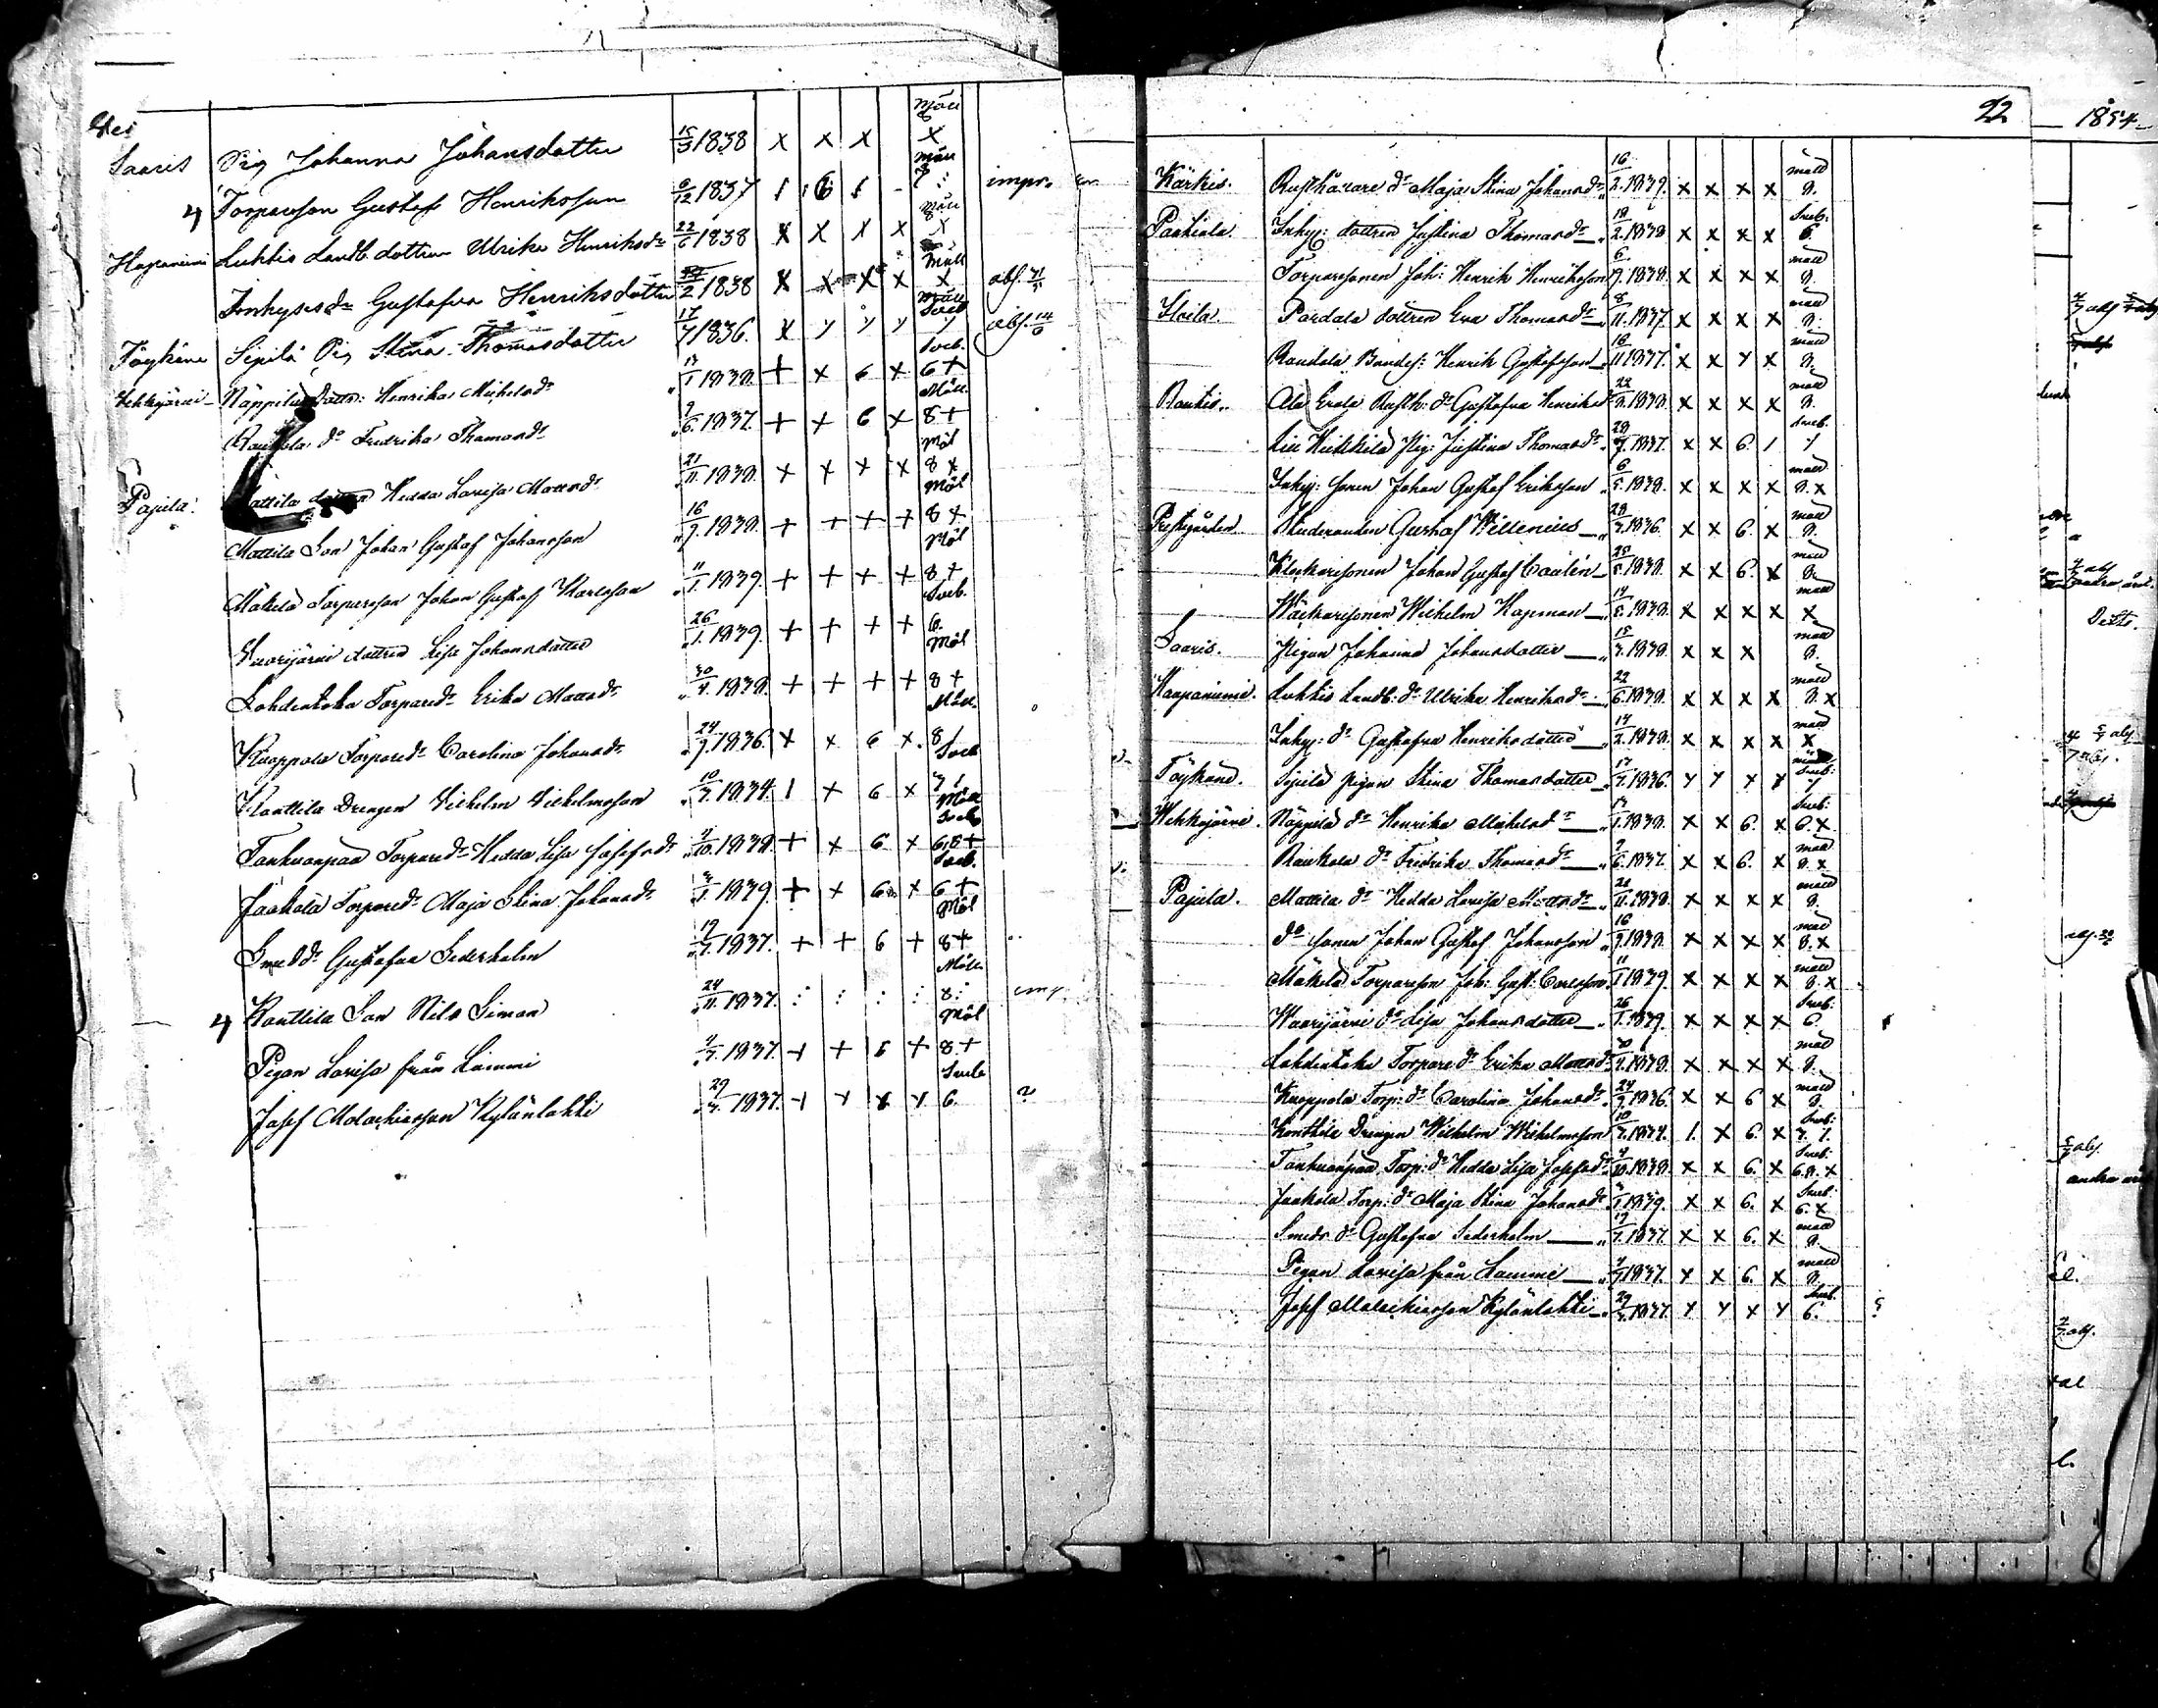 Saaris Pig Johanna Johansdotter 15/3 1838 x x x mäll 8 x
4 Torparson Gustaf Henriksson 6/12 1837 1 6 1 - mäll 8 impr.
Haapaniemi Luhtis Landb. dottren Ulrika Henriksdr 22/6 1838 x x x x mäll 8 x
Inhysesdr Gustafva Henriksdotter 2 1838 x x x x mäll x abs.
Töykänä Sipilä Pig Stina Thomasdotter 17/7 1836. x y y y abs.
Vehkajärvi Näppilä dottr: Henrika Michelsdr 17/1 1838. + x 6 x Sveb. 6 +
Raukola do Fredrika Thomasdr 7/6. 1837. + x 6 x Mäll. 8 +
Pajula: Mattila dottren Hedda Lovisa Mattsdr 21/11 1838. x x x x Mäl 8 x
Mattila Son Johan Gustaf Johansson 16/9. 1838. + + + + Mäl 8 x
Mäkelä Torparson Johan Gustaf Karlsson 11/1. 1839. + + + + Mäl 8 +
Vuorijärvi dottren Lisa Johansdotter 26/1. 1839. + + + + Sveb. 6.
Lahdentaka Torparedr Erika Mattsdr 30/4. 1838. + + + + Mäl 8 +
Kuoppala Torparedr Carolina Johansdr 24/9. 1836. x x 6 x. Mäll 8
Kanttila Drengen Vilhelm Vilhelmsson 10/7. 1834. 1 x 6 x Sveb 7
Tanhuanpää Torparedr Hedda Lisa Josefsdr 4/10. 1838. + x 6 x 6,8 +
Jaakola Torparedr Maja Stina Johansdr 1839. + x 6 x Sveb. 6 +
Smedsdr Gustafva Sederholm 19/7. 1837. + + 6 + Mäl 8 +
4 Kanttila Son Nils Simon 24/11. 1837. : : : : Mäll. 8: imp.
Pigan Lovisa från Lammi 4/7. 1837. + + 6 + Mäl 8 +
Josef Malachiasson Kylänlahti 29/4. 1837. + y x y. Sveb 6. ?
22
Kärkis. Rusthållare dr Maja Stina Johansdr 16/2. 1839. x x x x mäll 8.
Pentiala. Inhys: dottren Justina Thomasdr 18/2. 1838 x x x x Sveb. 6.
Torparesonen Joh: Henrik Henriksson 6/9. 1838. x x x x mäll 8.
Iloila. Pardala dottren Eva Thomasdr 8/11. 1837. x x x x mäll 8.
Raudala Bondes: Henrik Gustafsson 16/11 1837. x x y x mäll 8.
Rautis. Ala Erola Rusth: dr Gustafva Henriksdr 22/8. 1838. x x x x mäll 8.
Lill Heikkilä Pig: Justina Thomasdr 29/7. 1837. x x 6. 1 Sveb. 7
Inhys: sonen Johan Gustaf Eriksson 6/5. 1838. x x x x mäll 8. x
Prestgården. Studeranden Gustaf Willenius 28/3. 1836. x x 6. x mäll 8.
Klockarsonen Johan Gustaf Caulén 25/5. 1838. x x 6. x mäll 8.
Wäckarsonen Wilhelm Hapman 14/5. 1838. x x x x mäll x
Saaris. Pigan Johanna Johansdotter 15/3. 1838. x x x mäll 8.
Haapaniemi. Luhtis Landb: dr Ulrika Henriksdr 22/6. 1838. x x x x mäll 8. x
Inhys: dr Gustafva Henriksdotter 14/2. 1838. x x x x mäll x
Töykänä. Sipilä pigan Stina Thomasdotter 17/7. 1836. y y y y Sveb: 7
Wehkajärvi. Näppilä dr Henrika Michelsdr 17/1. 1838. x x 6. x Sveb: 6. x
Raukola dr Fredrika Thomasdr 7/6. 1837. x x 6. x mäll 8. x
Pajula. Mattila dr Hedda Lovisa Mattsdr 21/11. 1838. x x x x mäll 8.
do sonen Johan Gustaf Johansson 16/9. 1838. x x x x mäll 8. x
Mäkelä Torparson Joh: Gust: Carlsson 11/1 1839. x x x x mäll 8. x
Wuorijärvi dr Lisa Johansdotter 26/1. 1839. x x x x Sveb: 6.
Lahdentaka Torpare dr Erika Mattsdr 30/4. 1838. x x x x mäll 8.
Kuoppala Torp: dr Carolina Johansdr 24/9. 1836. x x 6 x mäll 8.
Kanttila Drengen Wilhelm Wilhelmsson 10/7. 1834. 1. x 6. x Sveb: 7. 1.
Tanhuanpää Torp: dr Hedda Lisa Josefsdr 4/10. 1838. x x 6. x Sveb: 6.8. x
Jaakola Torp: dr Maja Stina Johansdr 1839. x x 6. x Sveb: 6. x
Smeds dr Gustafva Sederholm 19/7. 1837 x x 6. x mäll 8.
Pigan Lovisa från Lammi 4/7 1837. y x 6. x mäll 8.
Josef Malachiasson Kylänlahti 29/4. 1837. y y x y Sveb. 6. ?
1854
abs
andra årl.
Detto.
abs.
abs.
abs.